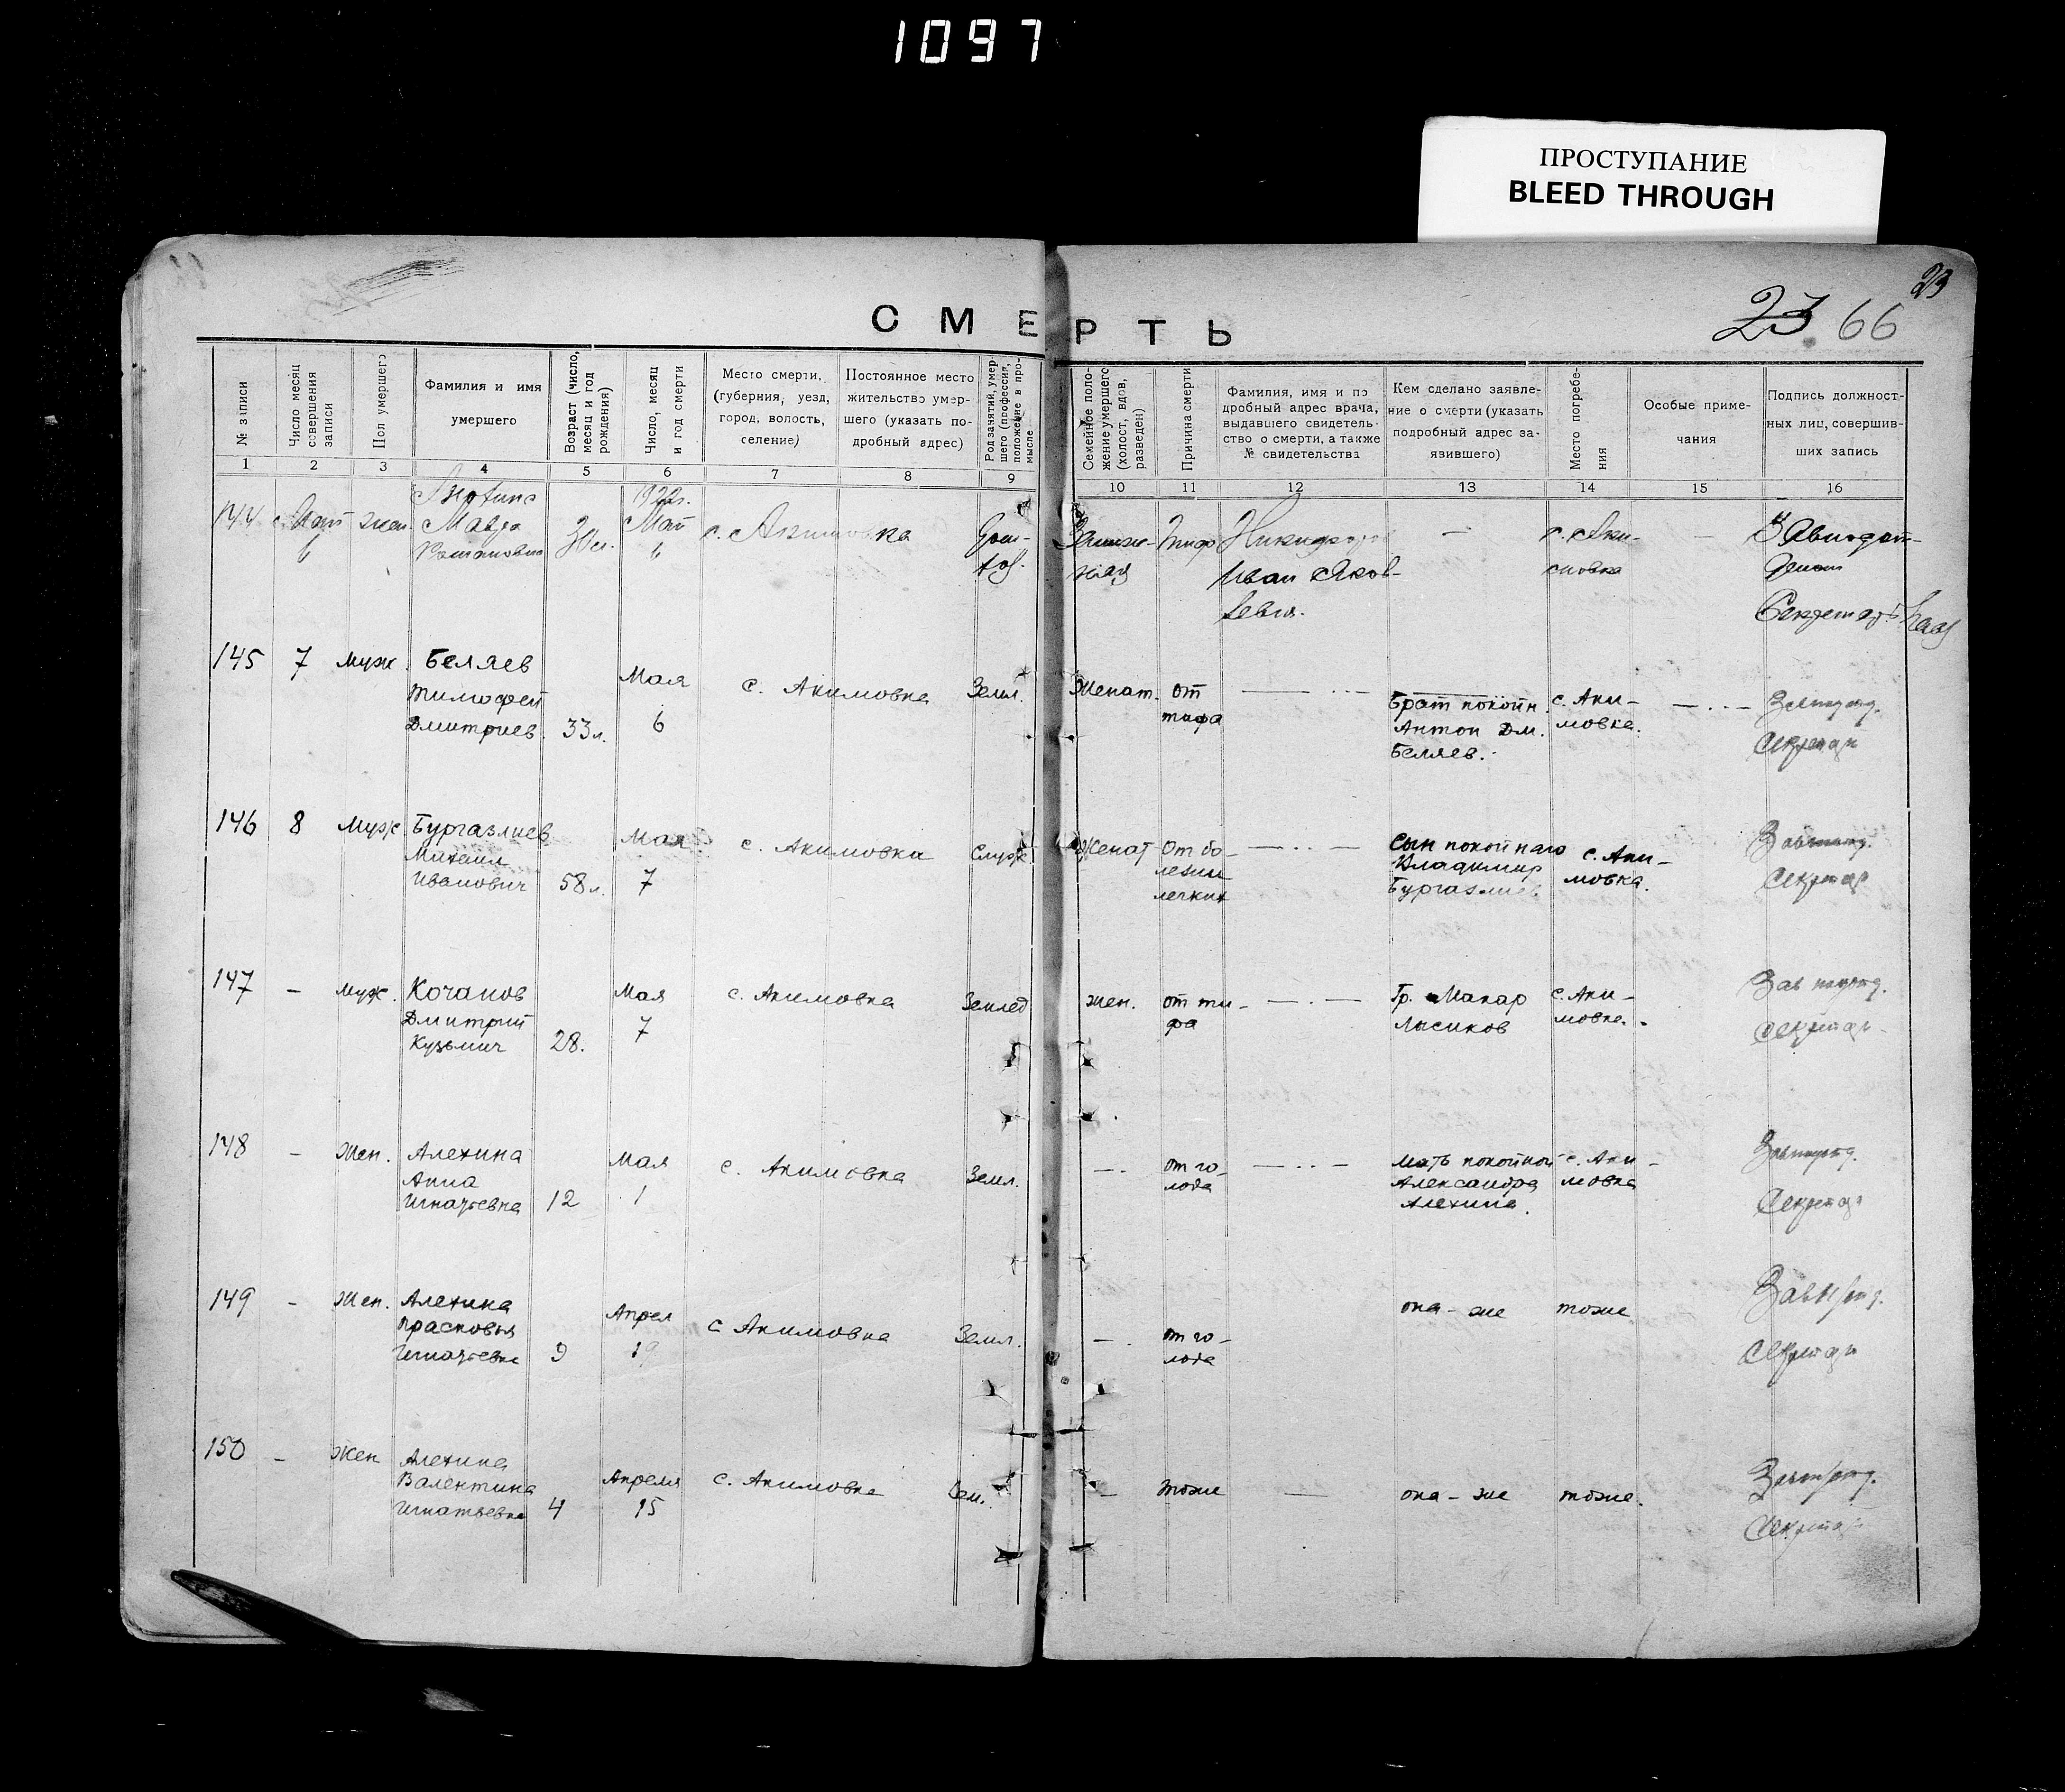 1097
ПРОСТУПАНИЕ
BLEED THROUGH
23
23 66
СМЕРТЬ
№ записи
Число месяц совершения записи
Пол умершего
Фамилия и имя умершего
Возраст (число, месяц и год рождения)
Число, месяц и год смерти
Место смерти, (губерния, уезд, город, волость, селение)
Постоянное место жительство умершего (указать подробный адрес)
Род занятий, умершего (профессия, положение в промысле
Семейное положение умершего (холост, вдов, разведен)
Причина смерти
Фамилия, имя и подробный адрес врача, выдавшего свидетельство о смерти, а также № свидетельства
Кем сделано заявление о смерти (указать подробный адрес заявившего)
Место погребения
Особые примечания
Подпись должностных лиц, совершивших запись
1 2 3 4 5 6 7 8 9 10 11 12 13 14 15 16
144 6 жен. Мавра 30л. 1922г. Май 6 с. Акимовка Тиф Иван Яков- — с. Аки-мовка — Секретарь
145 7 муж. Беляев Тимофей Дмитриев. 33л. Мая 6 с. Акимовка Земл. Женат. от тифа — Брат покойн. Антон Дм. Беляев. с. Аки-мовка. — Секретарь
146 8 Муж Бургазлиев Михаил Иванович 58л. Мая 7 с. Акимовка Служ Женат От бо-лезни легких — Сын покойнаго Владимир Бургазлиев. с. Аки-мовка. Секретар
147 - муж. Кочанов Дмитрий Кузьмич 28. Мая 7 с. Акимовка Землед жен. от ти-фа — Гр. Макар Лысиков с. Аки-мовка. Секретарь
148 - Жен. Алехина Анна Игнатьевна 12 Мая 1 с. Акимовка Земл. — от го-лода — Мать покойной Александра Алехина. с. Аки-мовка Секретарь
149 - Жен. Алехина Прасковья Игнатьевна 9 Апрел 19 с Акимовка Земл. — от го-лода она-же тоже Секретарь
150 - Жен Алехина Валентина Игнатьевна 4 Апреля 15 с. Акимовка Зем. — тоже — она-же тоже. Секретарь